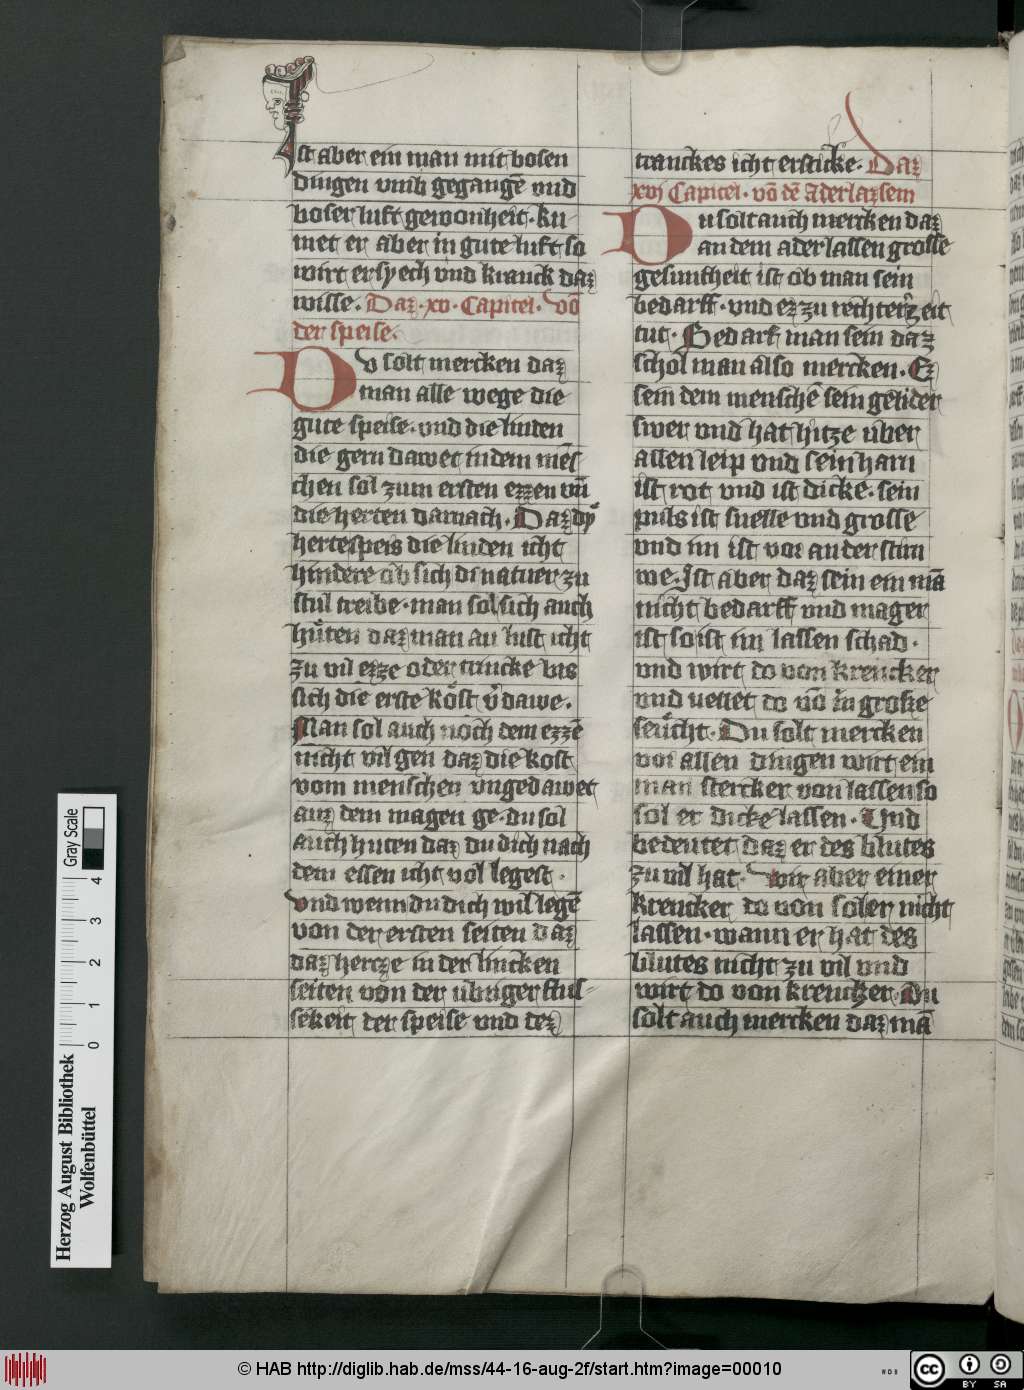 Ist aber ein man mit bosen
dingen vmb gegangē vnd
boser luft gewonheit· ku-
met er aber in gute luft so
wirt er syech vnd kranck daz
wisse· Daz ·xv· Capitel· vō
der speise·
Dv solt mercken daz
man alle wege die
gute speise· vnd die linden
die gern dawet in dem mēs
chen sol zum ersten ezzen vn̄
die herten darnach· Daz dy
herte speis die linden icht
hindere ob sich di natuer zu
stul treibe· man sol sich auch
hüten daz man an lust icht
zu vil ezze oder trincke bis
sich die erste kost v'dawe·
Man sol auch noch dem ezzē
nicht vil gen daz die kost
vom menschen vngedawet
auz dem magen ge· du sol
auch huten daz du dich nach
dem essen icht vol legest·
vnd wenn du dich wil legē
von der ersten seiten daz
daz hercze in der lincken
seiten von der übriger flus-
sekeit der speise vnd dez
tranckes icht ersticke· Daz
xvj Capitel· vō dē Aderlazsem
Du solt auch mercken daz
an dem ader lassen grosse
gesuntheit ist ob man sein
bedarff· vnd ez zu rechter zeit
tut· Bedarf man sein daz
schol man also mercken· Ez
sein dem menschē sein gelider
swer vnd hat hitze über
allen leip vnd sein harn
ist rot vnd ist dicke· sein
puls ist snelle vnd grosse
vnd im ist vor an der stirn
we· Ist aber daz sein ein mā
nicht bedarff vnd mager
ist so ist im lassen schad·
vnd wirt do von krencker
vnd vellet do vō in groze
seücht· Du solt mercken
vor allen dingen wirt ein
man stercker von lassen so
sol er dicke lassen· Vnd
bedeutet daz er des blutes
zu vil hat· wirt aber einer
krencker do von so ler nicht
lassen· wann er hat des
blutes nicht zu vil vnd
wirt do von krencker· Du
solt auch mercken daz mā
Herzog August Bibliothek
Wolfenbüttel
0 1 2 3 4
Gray Scale
© HAB http://diglib.hab.de/mss/44-16-aug-2f/start.htm?image=00010
CC BY SA